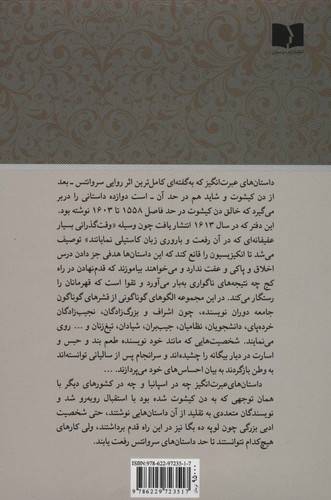 داستان‌های عبرت‌انگیز که به‌گفته‌ای کامل‌ترین اثر روایی سروانتس ـ بعد
از دن کیشوت و شاید هم در حد آن ـ است دوازده داستانی را دربر
می‌گیرد که خالق دن کیشوت در حد فاصل ۱۵۵۸ تا ۱۶۰۳ نوشته بود.
این دفتر که در سال ۱۶۱۳ انتشار یافت چون وسیله «وقت‌گذرانی بسیار
عفیفانه‌ای که در آن رفعت و باروری زبان کاستیلی نمایانند» توصیف
می‌شد تا انکیزیسیون را قانع کند که این داستان‌ها هدفی جز دادن درس
اخلاق و پاکی و عفت ندارد و می‌خواهند بیاموزند که قدم‌نهادن در راه
کج چه نتیجه‌های ناگواری به‌بار می‌آورد و تقوا است که قهرمانان را
رستگار می‌کند. در این مجموعه الگوهای گوناگونی از قشرهای گوناگون
جامعه دوران نویسنده، چون اشراف و بزرگ‌زادگان، نجیب‌زادگان
خرده‌پای، دانشجویان، نظامیان، جیب‌بران، شیادان، تیغ‌زنان و ... روی
می‌نمایند. شخصیت‌هایی که مانند خود نویسنده طعم بند و حبس و
اسارت در دیار بیگانه را چشیده‌اند و سرانجام پس از سالیانی توانسته‌اند
به وطن بازگردند به بیان احساس‌های خود می‌پردازند...
داستان‌های عبرت‌انگیز چه در اسپانیا و چه در کشورهای دیگر با
همان توجهی که به دن کیشوت شده بود با استقبال روبه‌رو شد و
نویسندگان متعددی به تقلید از آن داستان‌هایی نوشتند، حتی شخصیت
ادبی بزرگی چون لوپه ده بگا نیز در این راه قدم برداشتند، ولی کارهای
هیچ‌کدام نتوانستند تا حد داستان‌های سروانتس رفعت یابند.
ISBN: 978-622-97235-1-7
9 786229 723517